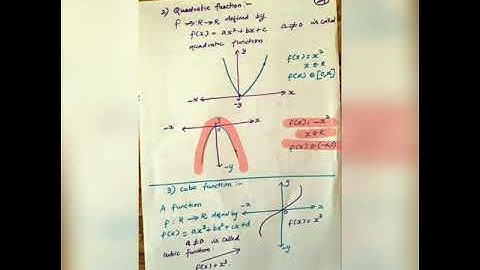 2) Quadratic function :-
f → : R → R defined by
f(x) = ax² + bx + c a ≠ 0 is called
quadratic function
y
f(x) = x²
x ∈ R
-x x
-y
y
-x x
f(x) = -x²
x ∈ R
-y
3) cube function :-
A function
f : R → R defined by
f(x) = ax³ + bx² + cx + d
a ≠ 0 is called
cubic function
f(x) = x³
y
-x x
0
f(x) = x³
-y